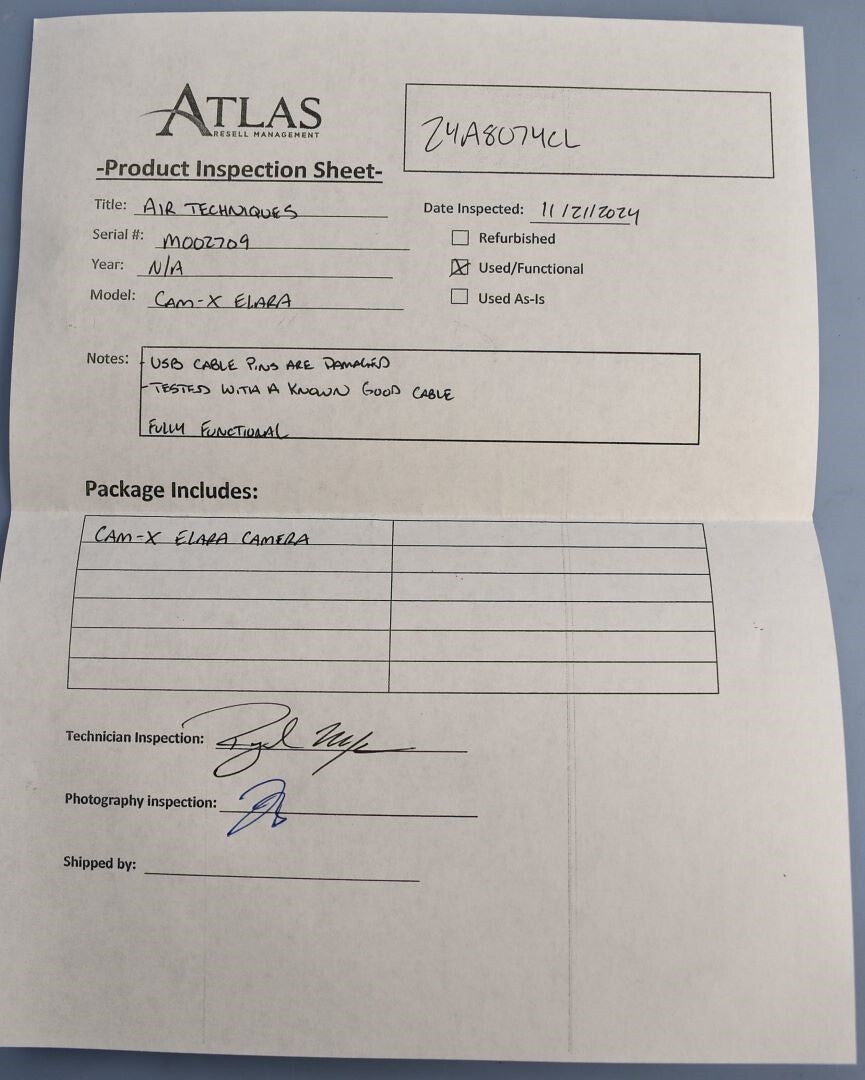 ATLAS
RESELL MANAGEMENT
24A8074CL
-Product Inspection Sheet-
Title: AIR TECHNIQUES
Date Inspected: 11/21/2024
Serial #: M002709
Refurbished
Year: N/A
Used/Functional
Model: CAM-X ELARA
Used As-Is
Notes: - USB CABLE PINS ARE DAMAGED
-TESTED WITH A KNOWN GOOD CABLE
FULLY FUNCTIONAL
Package Includes:
CAM-X ELARA CAMERA
Technician Inspection:
Photography inspection:
Shipped by: